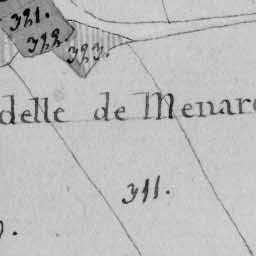 321.
322.
323.
delle de Menar
311.